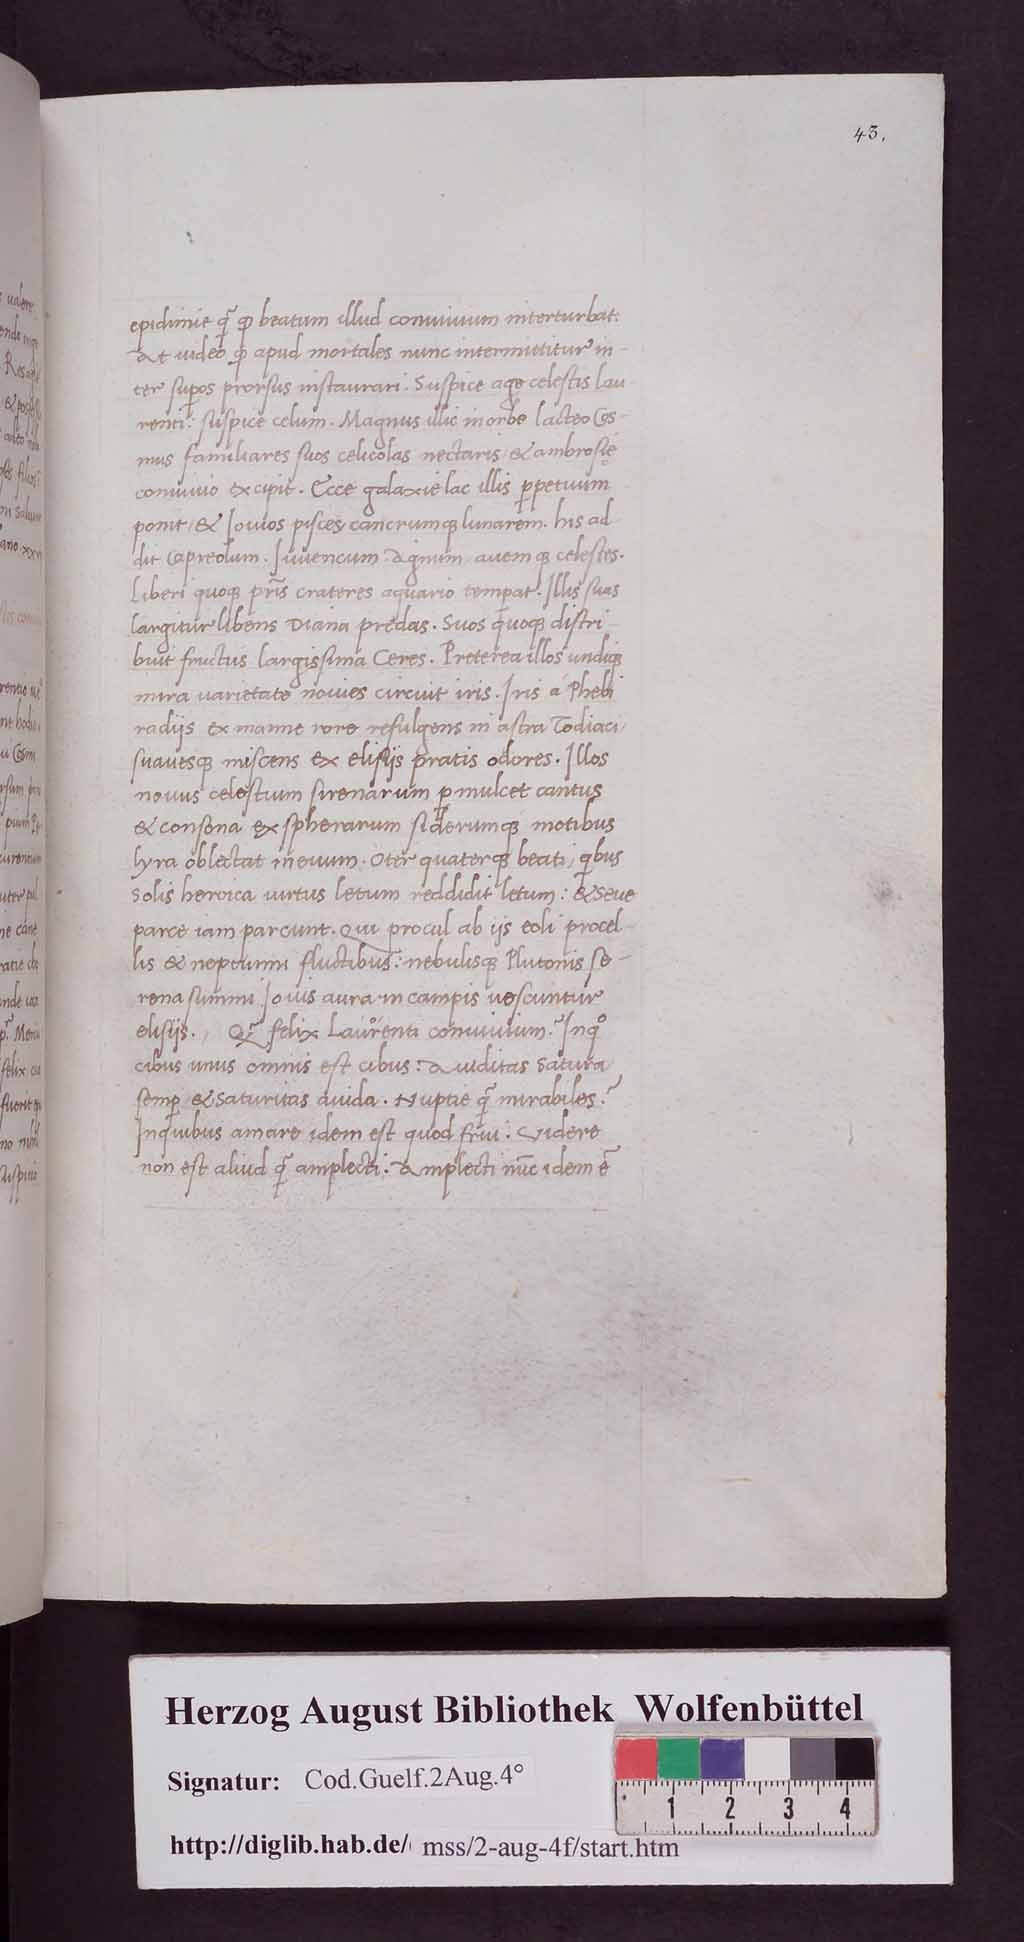 43.
epidimie qᷓ ꝙ beatum illud conuiuium interturbat:
At uideo ꝙ apud mortales nunc intermittitur in-
ter supos prorsus instaurari. Suspice age celestis lau-
renti: suspice celum. Magnus illic in orbe lacteo Cos-
mus familiares suos celicolas nectaris / & ambrosię
conuiuio excipit. Ecce galaxie lac illis ꝑpetuum
ponit / & Iouios pisces cancrumqꝫ lunarem. his ad
dit Capreolum. Iuuencum. Agnum auemqꝫ celestes.
Liberi quoqꝫ pr̃is crateres aquario tempat. Illis suas
largitur libens Diana predas. Suos quoqꝫ distri-
buit fructus largissima Ceres. Preterea illos undiqꝫ
mira varietate nouies circuit iris. Iris á Phebi
radijs ex manne rore refulgens in astra Zodiaci /
suauesqꝫ miscens ex elisijs pratis odores. Illos
nouus celestium sirenarum ꝑmulcet cantus
& consona ex spherarum siderumqꝫ motibus
lyra oblectat in euum. O ter quaterqꝫ beati / qͥbus
solis heroica uirtus letum reddidit letum: & seue
parce iam parcunt. Qui procul ab ijs eoli procel-
lis & neptunni fluctibus: nebulisqꝫ Plutonis se-
rena summi Iouis aura in campis uescuntur
elisijs. Qᷓ felix Laurenti conuiuium? Inqͦ
cibus unus omnis est cibus: Auiditas satura
semꝑ & saturitas auida. Nuptie qᷓ mirabiles?
In quibus amare idem est quod frui: Videre
non est aliud qᷓ amplecti: Amplecti nūc idem ē
Herzog August Bibliothek Wolfenbüttel
Signatur: Cod.Guelf.2Aug.4°
1 2 3 4
http://diglib.hab.de/ mss/2-aug-4f/start.htm